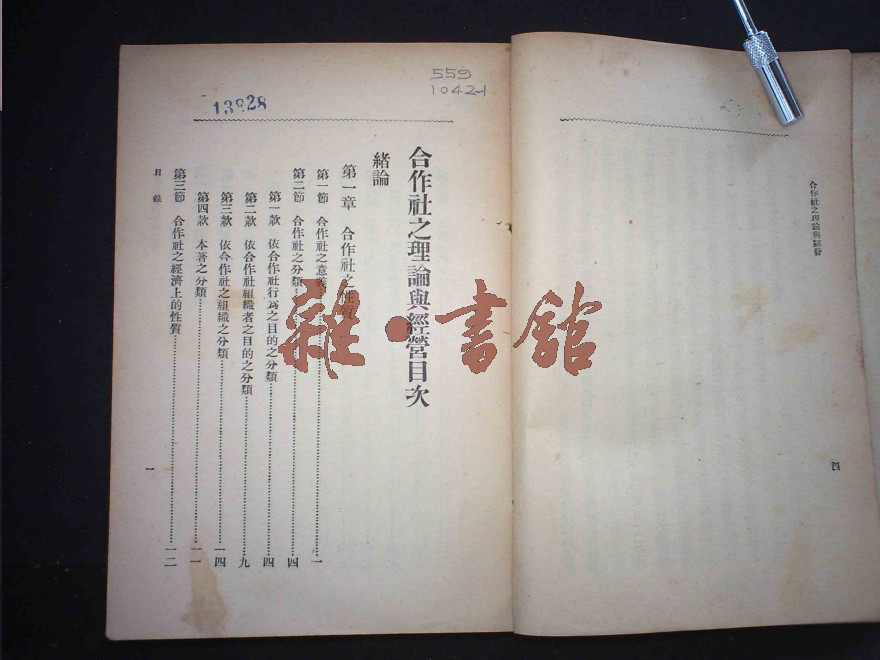 合作社之理論與經營
四
559
1042-1
合作社之理論與經營目次
緒論
第一章 合作社之性質
第一節 合作社之意義……一
第二節 合作社之分類……四
第一款 依合作社行為之目的之分類……四
第二款 依合作社組織者之目的之分類……九
第三款 依合作社之組織之分類……一四
第四款 本著之分類……一一
第三節 合作社之經濟上的性質……一二
目錄
一
雜·書館